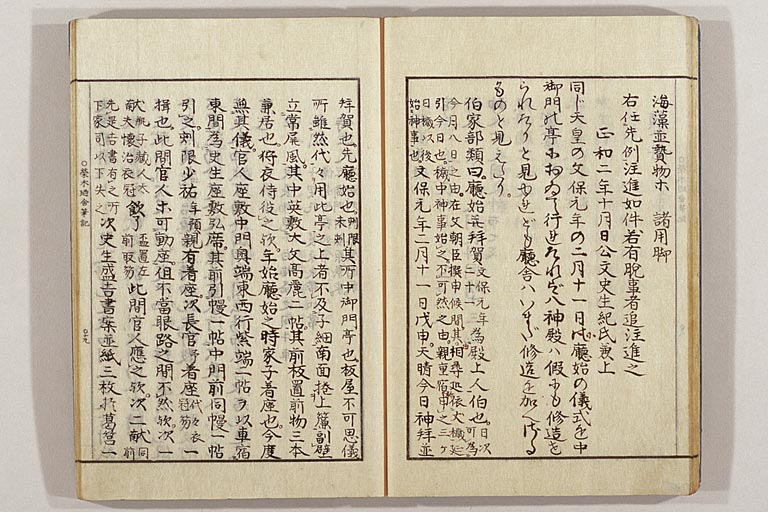 海藻並贄物ホ 諸用脚
右任先例注進如件若有脱事者追注進之
正和二年十月日公文史生紀氏兼上
同じ天皇の文保元年の二月十一日此廳始の儀式を中
御門の亭におゐて行せられ八神殿ハ假にも修造を
られたりと見ゆれども廳舎ハいまだ修造を加へざる
ものと見えたり
伯家部類曰廳始並拜賀文保元年二十一為殿上人伯也日次可為
今月八日之由在文朝臣撰申候間其相尋処依大
引今日也穢中神事始不可然之由親重宿申之三ヶ
日穢以後文保元年二月十一日戊申天晴今日神拜並
始神事也
拜賀也先廳始也刻限未刻其所中御門亭也板屋不可思儀
所雖然代々用此亭之上者不及子細南面捲上簾副壁
立常屏風其中英敷大文高麗二帖其前板置前物三本
兼居也府夜侍役之次年始廳始之時家子着座也今度
無其儀官人座敷中門奥端東西行紫端二帖ヲ以車宿
東間為史生座敷弘席其前引慢一帖中門前同慢一帖
引之刻限少祐年預親有着座次長官予着座代々衣冠笏一
揖也此間官人ホ可動座但不當眼路之間不然歟次一
獻瓶子蔵人大夫懐治衣冠飲了盃置左前取笏此間官人應之次二献同前
先是吉書有之所下家司以下失之次史生盛吉書案並紙三枚於葛筥一